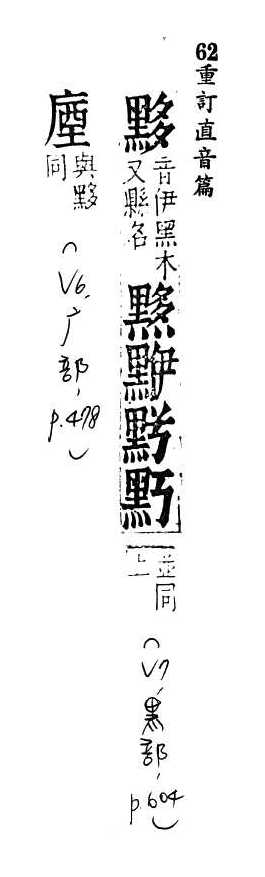 62重訂直音篇
黟
音伊黑木
又縣名
並同
上
(V7,黑部,p.604)
與黟
同
(V6,广部,p.478)